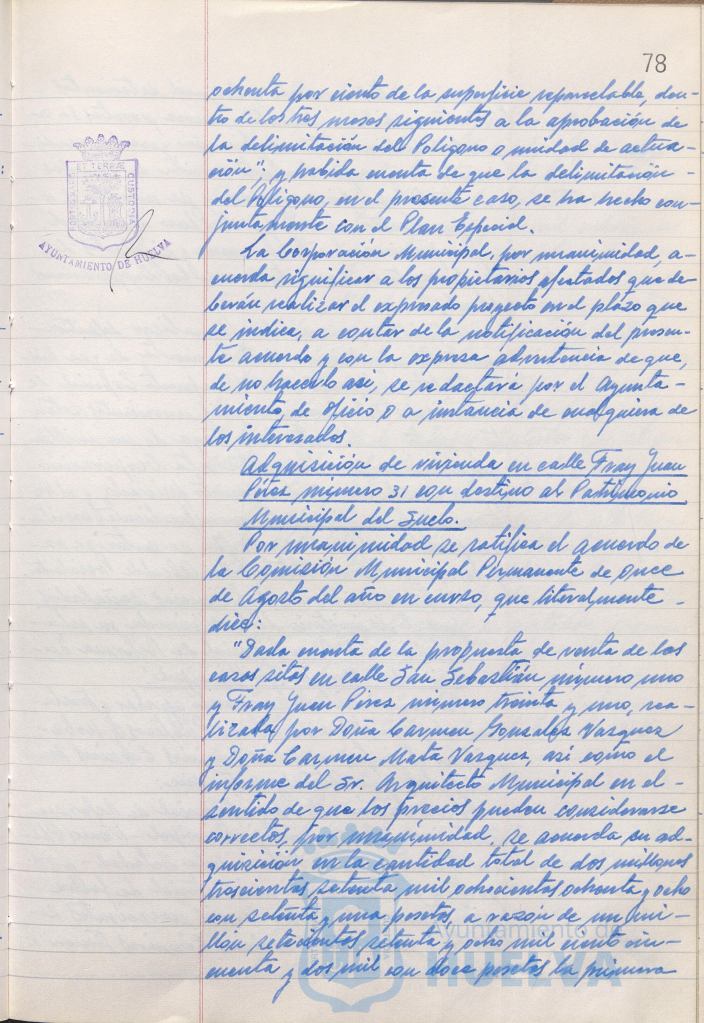 78
ochenta por ciento de la superficie reparcelable, den-
tro de los tres meses siguientes a la aprobación de
la delimitación del Polígono o unidad de actua-
ción"; y habida cuenta de que la delimitación
del Polígono, en el presente caso, se ha hecho con-
juntamente con el Plan Especial.
La Corporación Municipal, por unanimidad, a-
cuerda significar a los propietarios afectados que de-
berán realizar el expresado proyecto en el plazo que
se indica, a contar de la notificación del presen-
te acuerdo y con la expresa advertencia de que,
de no hacerlo así, se redactará por el Ayunta-
miento, de oficio o a instancia de cualquiera de
los interesados.
Adquisición de vivienda en calle Fray Juan
Pérez número 31 con destino al Patrimonio
Municipal del Suelo.
Por unanimidad se ratifica el acuerdo de
la Comisión Municipal Permanente de once
de Agosto del año en curso, que literalmente
dice:
"Dada cuenta de la propuesta de venta de las
casas sitas en calle San Sebastián número uno
y Fray Juan Pérez número treinta y uno, rea-
lizada por Doña Carmen Gonzalez Vazquez
y Doña Carmen Mata Vazquez, así como el
informe del Sr. Arquitecto Municipal en el
sentido de que los precios pueden considerarse
correctos, por unanimidad, se acuerda su ad-
quisición en la cantidad total de dos millones
trescientas setenta mil ochocientas ochenta y ocho
con setenta y una pesetas, a razón de un mi-
llón setecientas setenta y ocho mil ciento cin-
cuenta y dos mil con doce pesetas la primera
PORTUS MARIS ET TERRAE CUSTODIA
AYUNTAMIENTO DE HUELVA
Ayuntamiento de
HUELVA